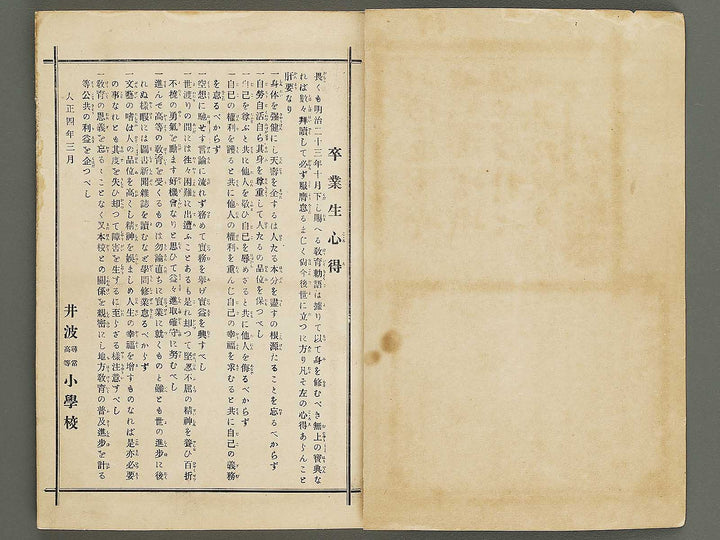 卒業生心得
畏くも明治二十三年十月下し賜へる教育勅語は據りて以て身を修むべき無上の寶典な
れば數々拜讀して必ず服膺怠るまじく尚今後世に立つに方り凡そ左の心得あらんこと
肝要なり
一身体を强健にし天壽を全するは人たる本分を盡すの根源たることを忘るべからず
一自勞自活自ら其身を尊重して人たるの品位を保つべし
一自己を尊ぶと共に他人を敬ひ自己を辱めざると共に他人を侮るべからず
一自己の權利を護ると共に他人の權利を重んじ自己の幸福を求むると共に自己の義務
を怠るべからず
一空想に馳せず言論に流れず務めて實務を擧げ實益を興すべし
一世渡りの間には往々困難に出遭ふことあるも是れ却つて堅忍不屈の精神を養ひ百折
不撓の勇氣を勵ます好機會なりと思ひて益々進取確守に努むべし
一進んで高等の敎育を受くるものは勿論直ちに實業に就くものと雖とも世の進步に後
れぬ樣暇には圖書新聞雜誌を讀むなど學問修業怠るべからず
一文藝の嗜は人の品位を高くし精神を娛ましめ人生の幸福を增すものなれば是亦必要
の事なれとも其度を失ひ却つて障害を生するに至らざる樣注意すべし
一敎育の恩義を忘るゝことなく又本校との關係を親密にし地方敎育の普及進步を計る
等公共の利益を企つべし
大正四年三月
井波尋常高等小學校